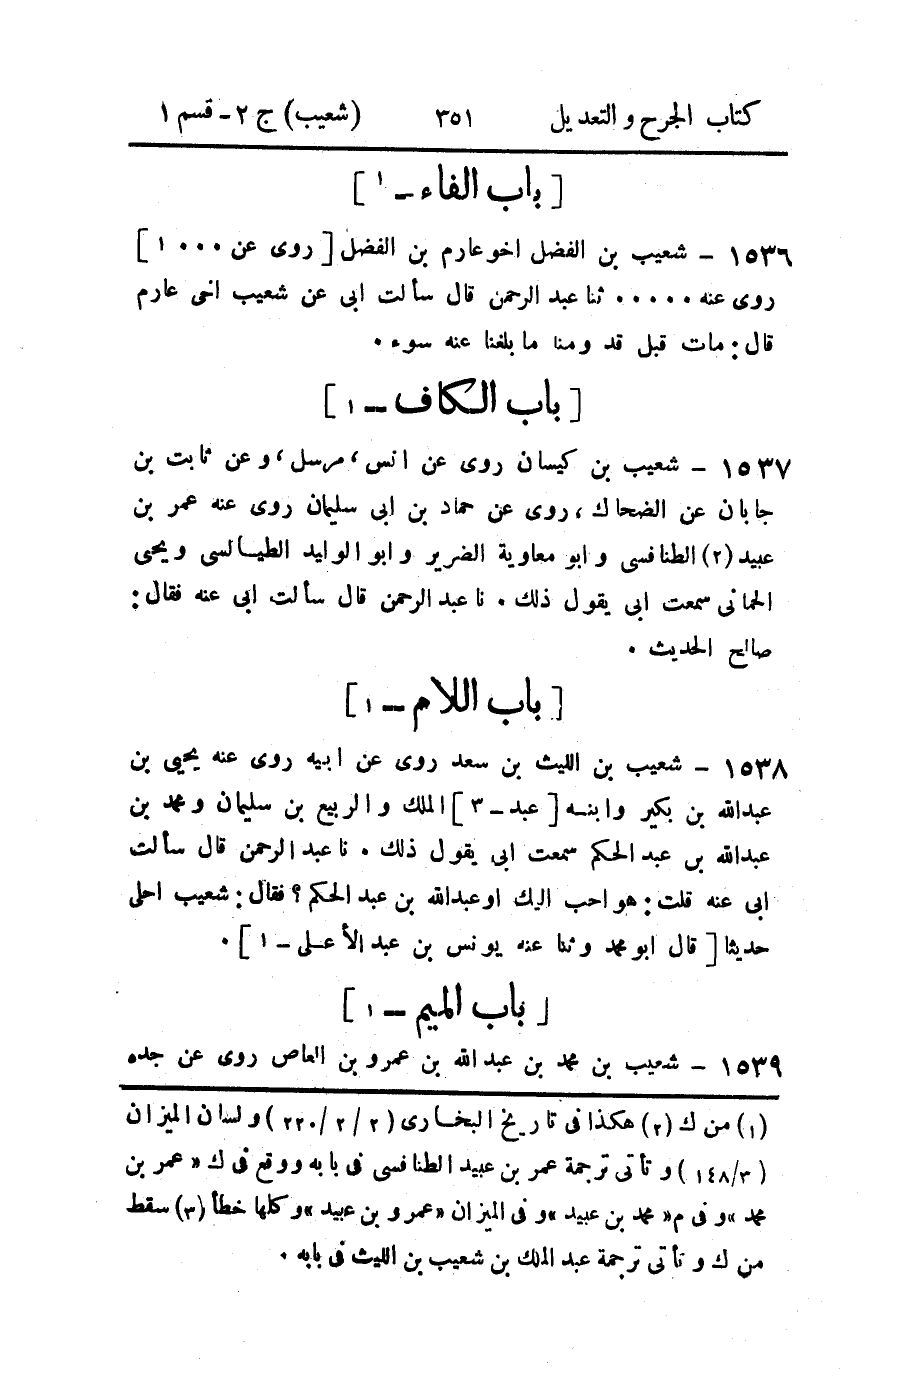 كتاب الجرح والتعديل ٣٥١ (شعيب) ج ٢ - قسم ١
[باب الفاء - ١]
١٥٣٦ - شعيب بن الفضل اخو عارم بن الفضل [روى عن ٠٠٠ ١]
روى عنه ٠٠٠٠٠ ثنا عبد الرحمن قال سألت ابى عن شعيب اخى عارم
قال: مات قبل قدومنا ما بلغنا عنه سوء ٠
[باب الكاف - ١]
١٥٣٧ - شعيب بن كيسان روى عن انس، مرسل، وعن ثابت بن
جابان عن الضحاك، روى عن حماد بن ابى سليمان روى عنه عمر بن
عبيد (٢) الطنافسى وابو معاوية الضرير وابو الوليد الطيالسى ويحيى
الحمانى سمعت ابى يقول ذلك ٠ نا عبد الرحمن قال سألت ابى عنه فقال:
صالح الحديث ٠
[باب اللام - ١]
١٥٣٨ - شعيب بن الليث بن سعد روى عن ابيه روى عنه يحيى بن
عبدالله بن بكير وابنه [عبد - ٣] الملك والربيع بن سليمان ومحمد بن
عبدالله بن عبد الحكم سمعت ابى يقول ذلك ٠ نا عبد الرحمن قال سألت
ابى عنه قلت: هو احب اليك او عبدالله بن عبد الحكم؟ فقال: شعيب احلى
حديثا [قال ابو محمد وثنا عنه يونس بن عبد الأعلى - ١] ٠
[باب الميم - ١]
١٥٣٩ - شعيب بن محمد بن عبد الله بن عمرو بن العاص روى عن جده
(١) من ك (٢) هكذا فى تاريخ البخارى (٢/٢/٢٢٠) ولسان الميزان
(٣/١٤٨) وتأتى ترجمة عمر بن عبيد الطنافسى فى بابه ووقع فى ك «عمر بن
محمد» وفى م «محمد بن عبيد» وفى الميزان «عمرو بن عبيد» وكلها خطأ (٣) سقط
من ك وتأتى ترجمة عبد الملك بن شعيب بن الليث فى بابه ٠